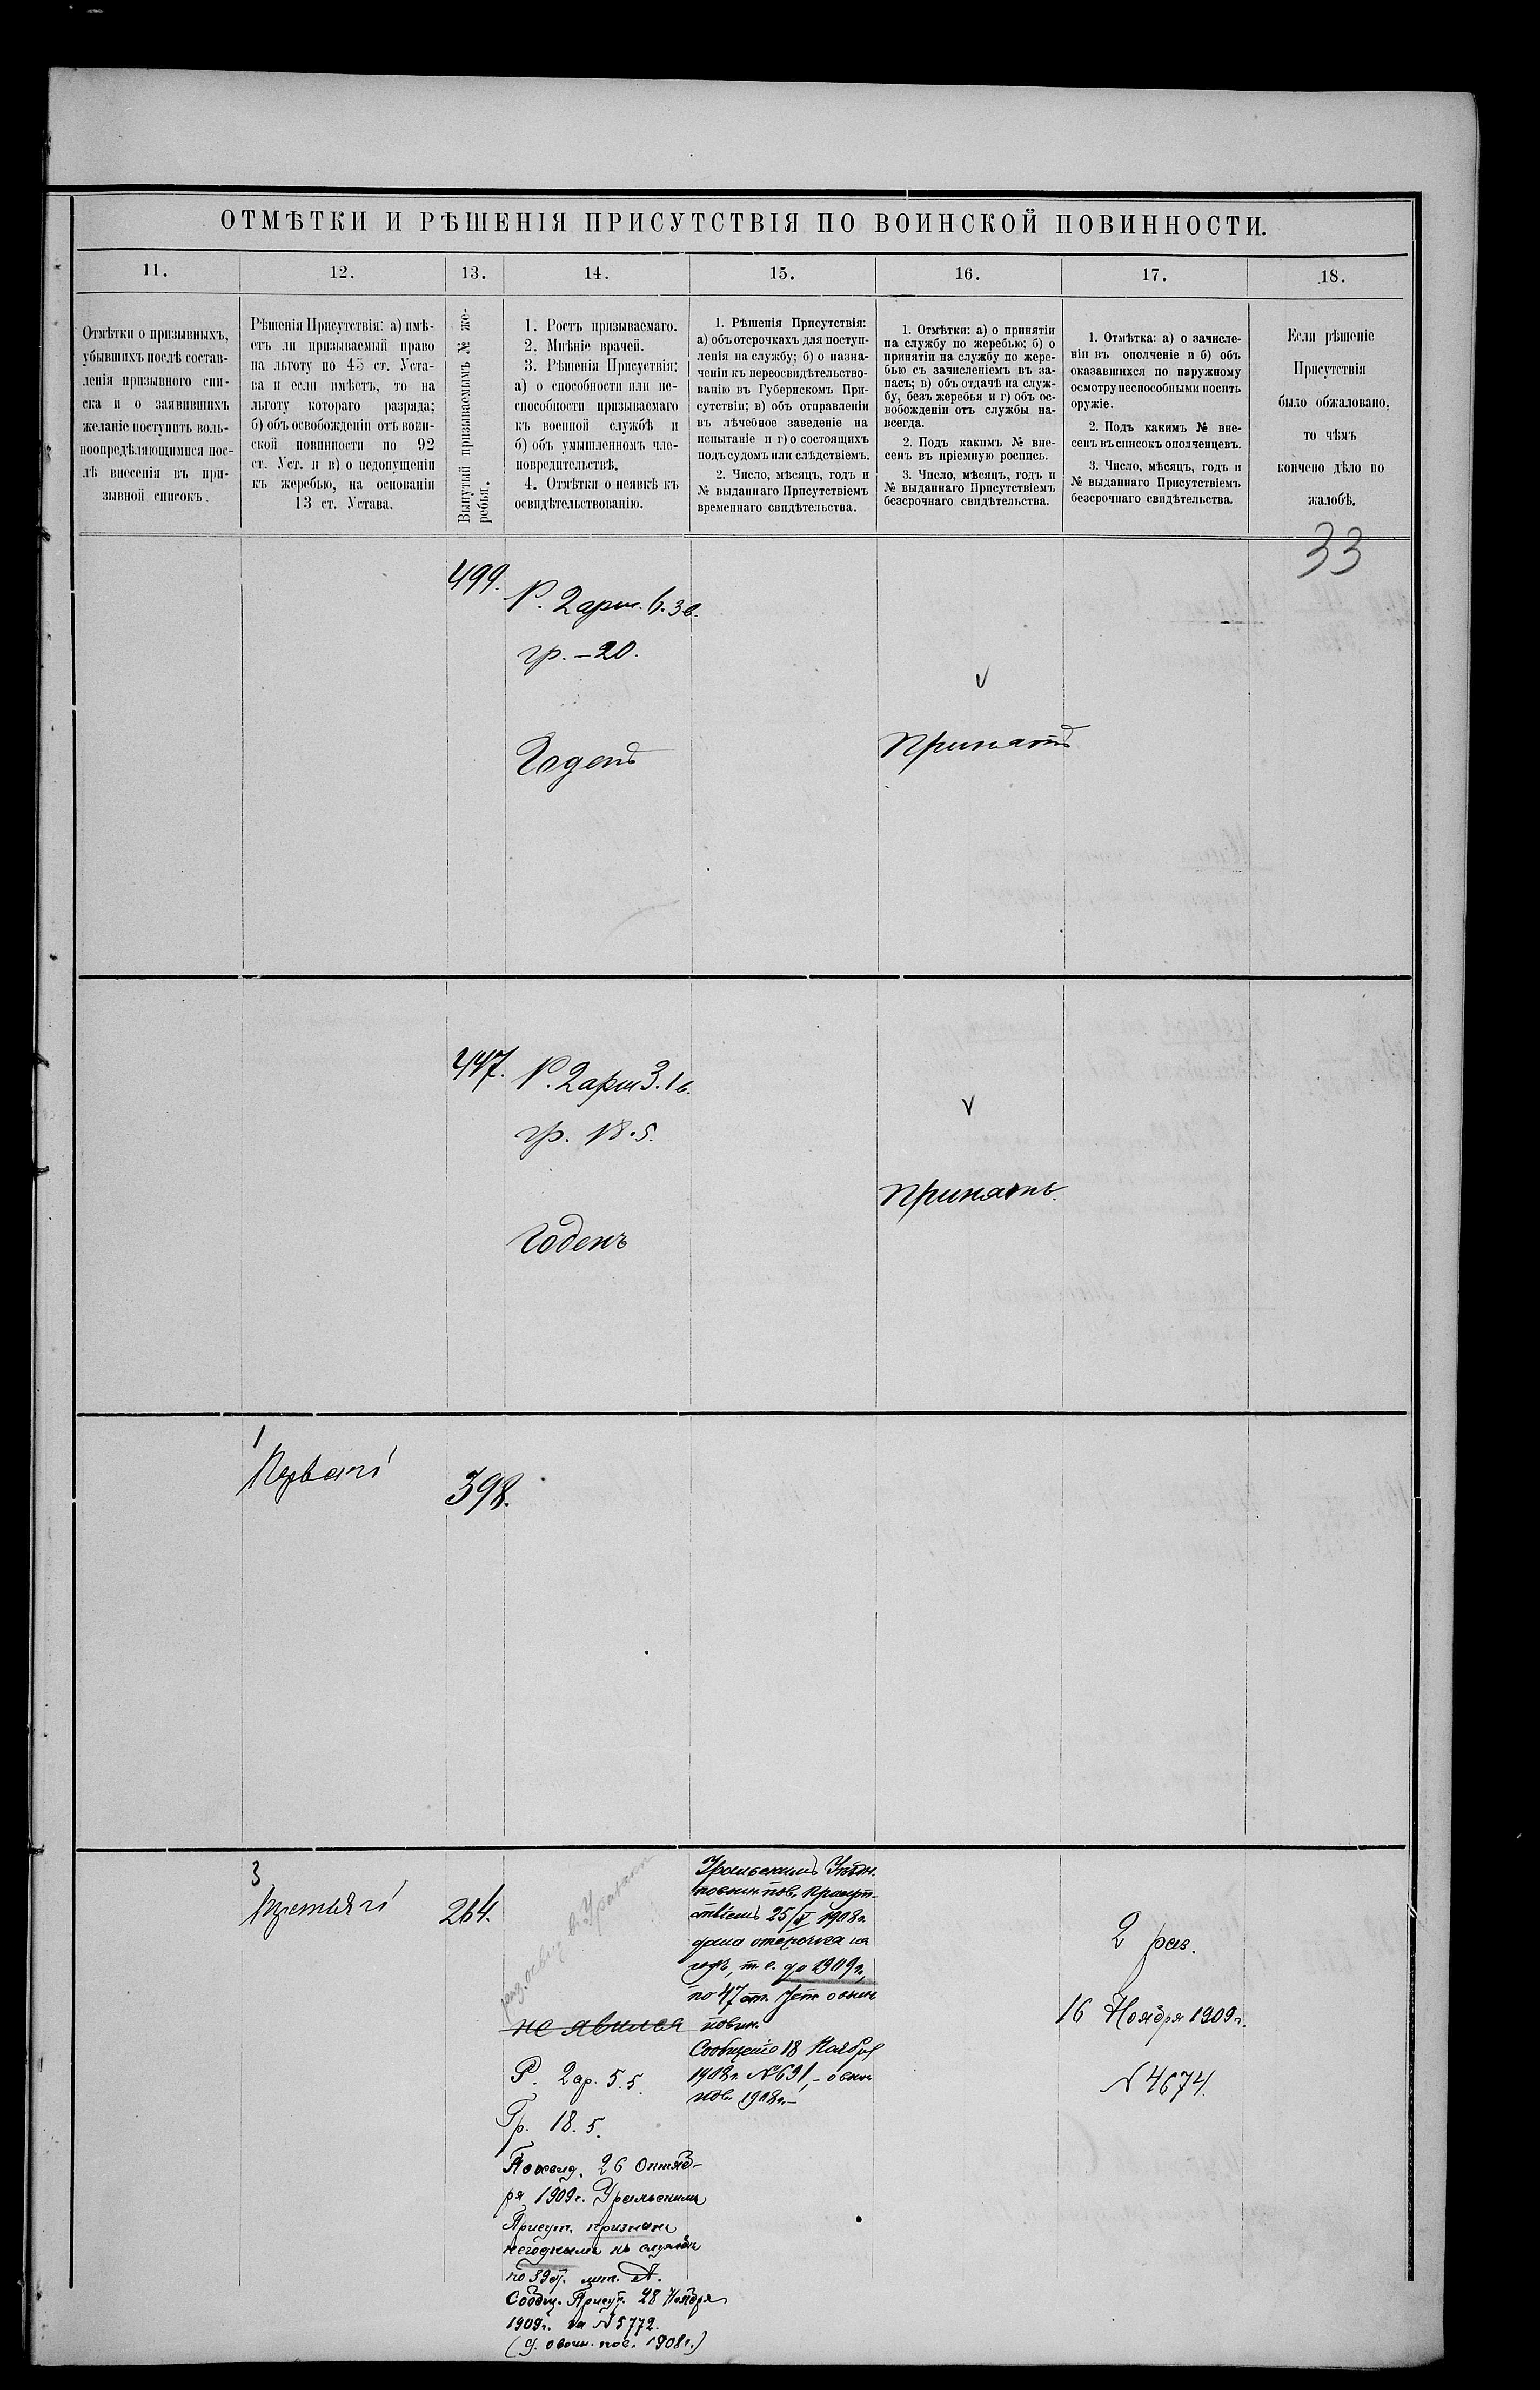 ОТМѢТКИ И РѢШЕНІЯ ПРИСУТСТВІЯ ПО ВОИНСКОЙ ПОВИННОСТИ.
11.
12.
13.
14.
15.
16.
17.
18.
Отмѣтки о призывныхъ,
убывшихъ послѣ состав-
ленія призывного спи-
ска и о заявившихъ
желаніе поступить воль-
ноопредѣляющимися пос-
лѣ внесенія въ при-
зывной списокъ.
Рѣшенія Присутствія: а) имѣ-
етъ ли призываемый право
на льготу по 45 ст. Уста-
ва и если имѣетъ, то на
льготу котораго разряда;
б) объ освобожденіи отъ воин-
ской повинности по 92
ст. Уст. и в) о недопущеніи
къ жеребью, на основаніи
13 ст. Устава.
Вынутый призываемымъ № же-
ребья.
1. Ростъ призываемаго.
2. Мнѣніе врачей.
3. Рѣшенія Присуствія:
а) о способности или не-
способности призываемаго
къ военной службѣ и
б) объ умышленномъ чле-
новредительствѣ.
4. Отмѣтки о неявкѣ къ
освидѣтельствованію.
1. Рѣшенія Присутствія:
а) объ отсрочкахъ для поступ-
ленія на службу; б) о назна-
ченіи къ переосвидѣтельство-
ванію въ Губернскомъ При-
сутствіи; в) объ отправленіи
въ лѣчебное заведеніе на
испытаніе и г) о состоящихъ
подъ судомъ или слѣдствіемъ.
2. Число, мѣсяцъ, годъ и
№ выданнаго Присутствіемъ
временнаго свидѣтельства.
1. Отмѣтки: а) о принятіи
на службу по жеребью; б) о
принятіи на службу по жере-
бью съ зачисленіемъ въ за-
пасъ; в) объ отдачѣ на служ-
бу, безъ жеребья и г) объ ос-
вобожденіи отъ службы на-
всегда.
2. Подъ какимъ № вне-
сенъ въ пріемную роспись.
3. Число, мѣсяцъ, годъ и
№ выданнаго Присутствіемъ
безсрочнаго свидѣтельства.
1. Отмѣтка: а) о зачисле-
ніи въ ополченіе и б) объ
оказавшихся по наружному
осмотру неспособными носить
оружіе.
2. Подъ какимъ № вне-
сенъ въ списокъ ополченцевъ.
3. Число, мѣсяцъ, годъ и
№ выданнаго Присутствіемъ
безсрочнаго свидѣтельства.
Если рѣшеніе
Присутствія
было обжаловано,
то чѣмъ
кончено дѣло по
жалобѣ.
33
499.
Р. 2 арш. 6. 3 в.
гр. – 20.
Годенъ
Принятъ
447.
Р. 2 арш 3. 1 в.
гр. 18.5.
Годенъ
Принятъ.
1
Первый
398.
3
Третьяго
264.
не явился
Р. 2 ар. 5. 5.
Гр. 18. 5.
26 Октяб-
ря 1909 г. Уральскимъ
Присут. признанъ
негоднымъ къ службѣ
по 39 ст. лит. А.
Сообщ. Присут. 28 Ноября
1909 г. за № 5772.
(Д. о воин. пов. 1908 г.)
Уральскимъ
повин. Присут-
ствіемъ 25/ 1908 г.
дана отсрочка на
годъ, т. е. до 1909 г.,
по 47 ст. Уст. о воин
повин.
Сообщеніе 18 Ноября
1908 г. № 691, – о воин
пов. 1908 г.–
2 раз.
16 Ноября 1909 г.
№ 4674.